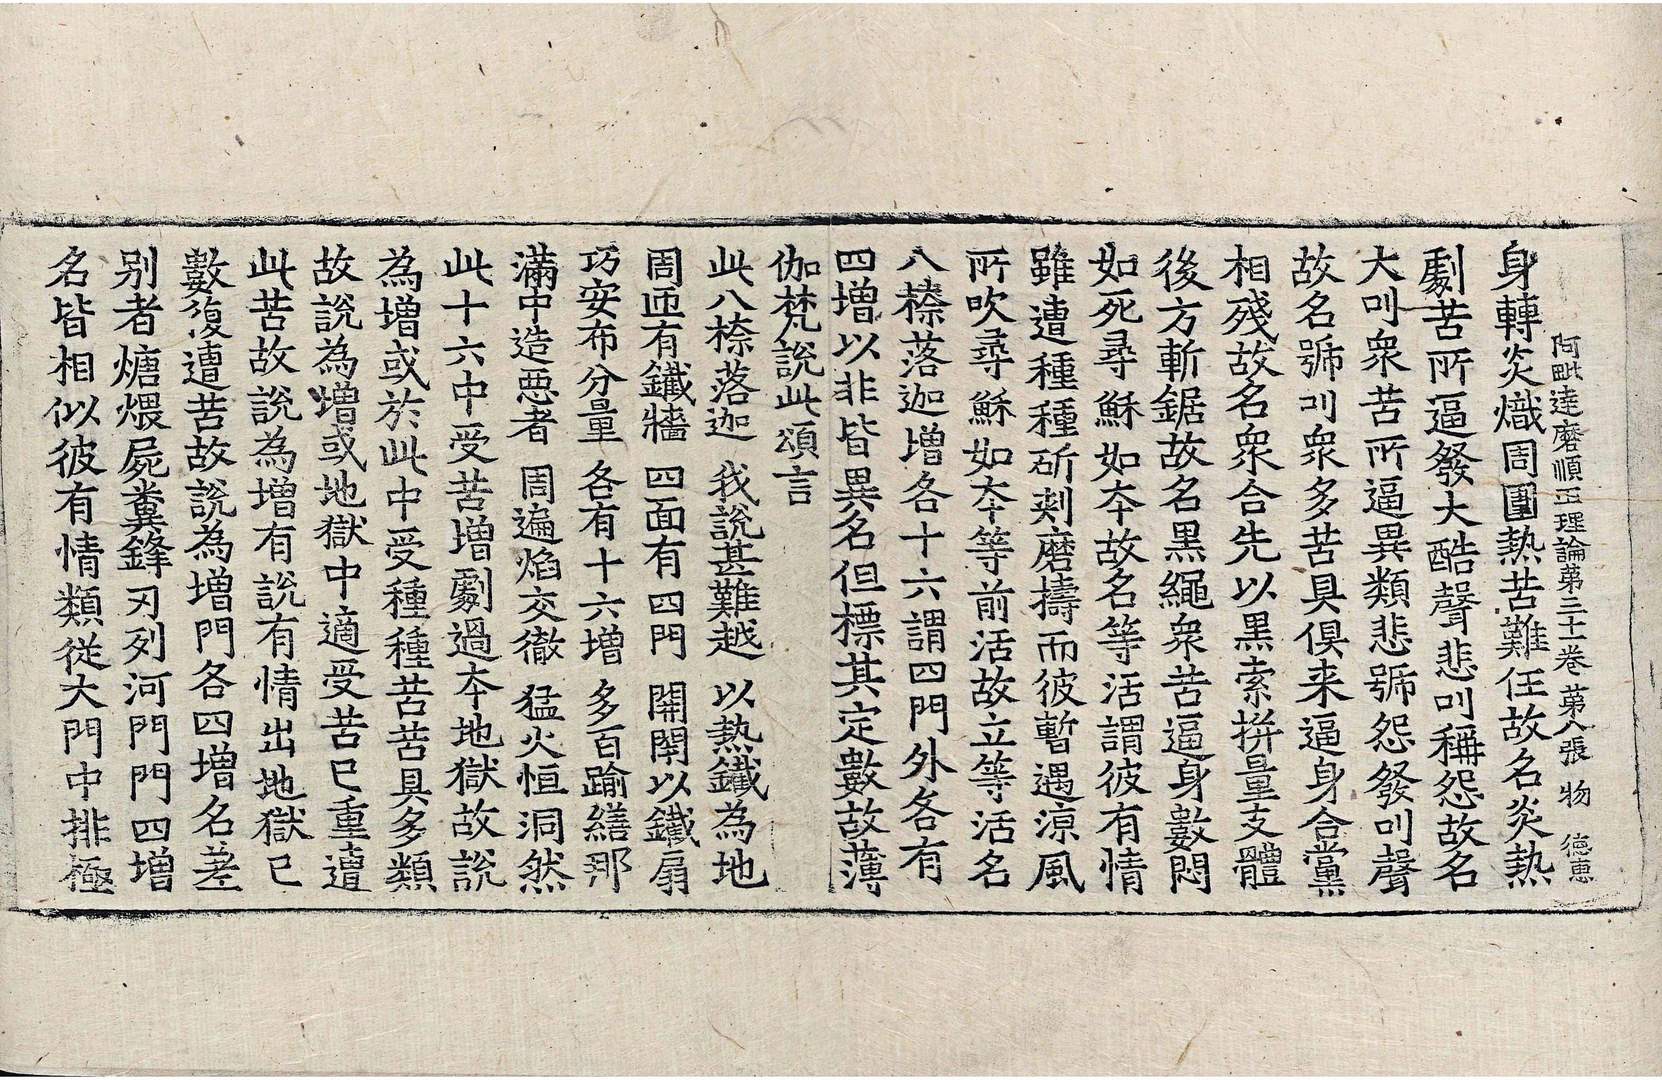 阿毗達磨順正理論第三十一卷 第八張 物 德惠
身轉炎熾周圍熱苦難任故名炎熱
劇苦所逼發大酷聲悲叫稱怨故名
大叫衆苦所逼異類悲號怨發叫聲
故名號叫衆多苦具俱来逼身合黨
相殘故名衆合先以黑索拼量支體
後方斬鋸故名黑繩衆苦逼身數悶
如死尋穌如夲故名等活謂彼有情
雖遭種種斫刺磨擣而彼暫遇涼風
所吹尋穌如夲等前活故立等活名
八㮈落迦增各十六謂四門外各有
四增以非皆異名但標其定數故薄
伽梵說此頌言
此八㮈落迦 我說甚難越 以熱鐵為地
周匝有鐵牆 四面有四門 關閉以鐵扇
巧安布分量 各有十六增 多百踰繕那
滿中造惡者 周遍焰交徹 猛火恒洞然
此十六中受苦增劇過夲地獄故說
為增或於此中受種種苦苦具多類
故說為增或地獄中適受苦已重遭
此苦故說為增有說有情出地獄已
數復遭苦故說為增門各四增名差
別者煻煨屍糞鋒刃列河門門四增
名皆相似彼有情類從大門中排極